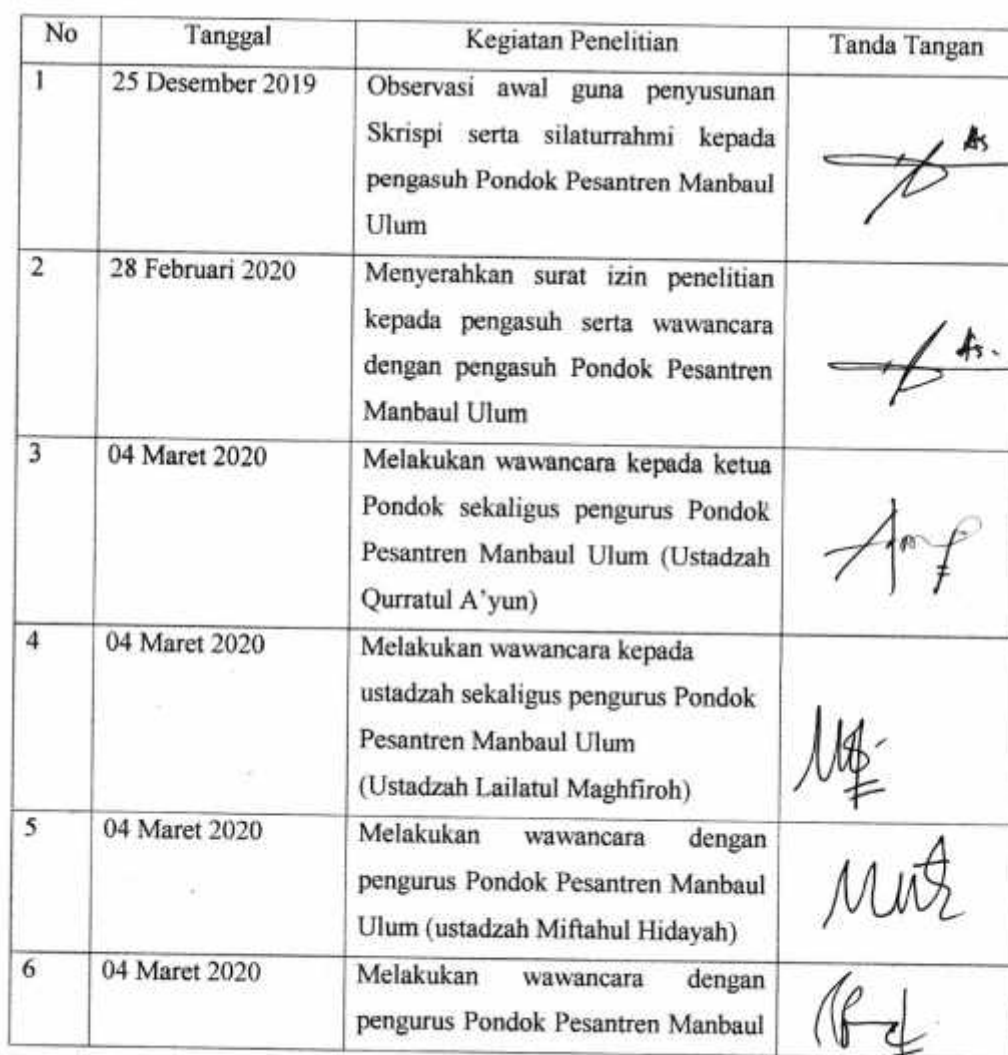 No Tanggal Kegiatan Penelitian Tanda Tangan
1 25 Desember 2019 Observasi awal guna penyusunan
Skrispi serta silaturrahmi kepada
pengasuh Pondok Pesantren Manbaul
Ulum
2 28 Februari 2020 Menyerahkan surat izin penelitian
kepada pengasuh serta wawancara
dengan pengasuh Pondok Pesantren
Manbaul Ulum
3 04 Maret 2020 Melakukan wawancara kepada ketua
Pondok sekaligus pengurus Pondok
Pesantren Manbaul Ulum (Ustadzah
Qurratul A'yun)
4 04 Maret 2020 Melakukan wawancara kepada
ustadzah sekaligus pengurus Pondok
Pesantren Manbaul Ulum
(Ustadzah Lailatul Maghfiroh)
5 04 Maret 2020 Melakukan wawancara dengan
pengurus Pondok Pesantren Manbaul
Ulum (ustadzah Miftahul Hidayah)
6 04 Maret 2020 Melakukan wawancara dengan
pengurus Pondok Pesantren Manbaul